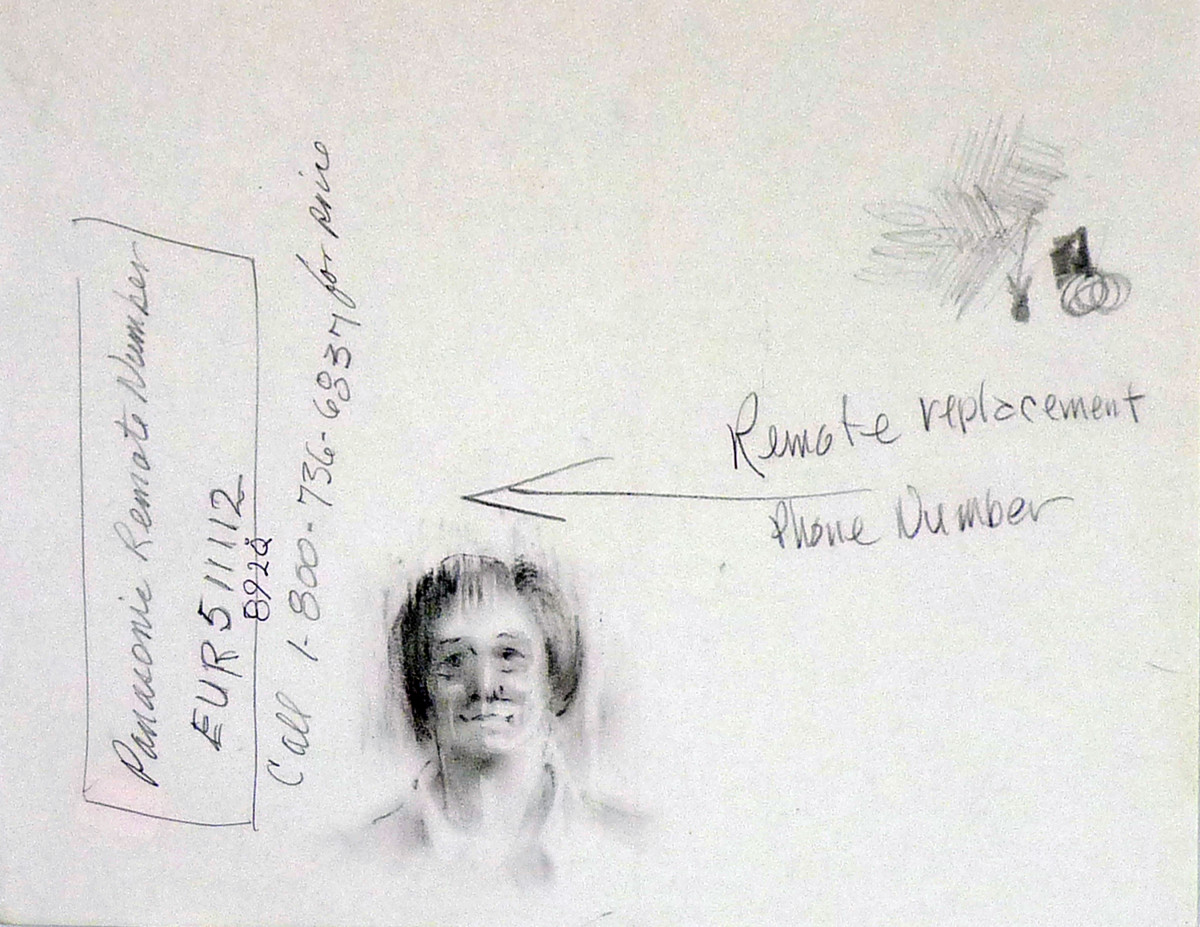 Panasonic Remote Number
EUR511112
8928
Call 1-800-736-6837 for price
Remote replacement
Phone Number